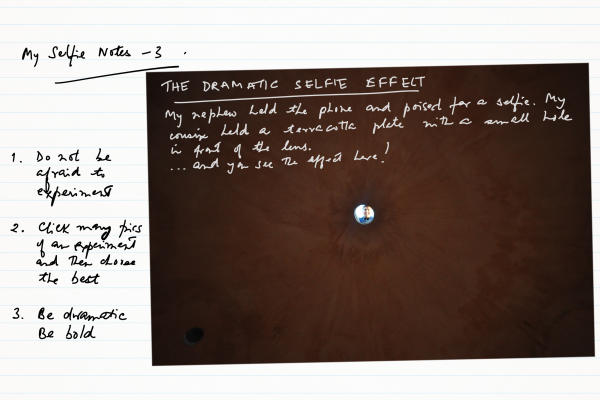 My Selfie Notes - 3 .
THE DRAMATIC SELFIE EFFECT
My nephew held the phone and poised for a selfie. My
cousin held a terracotta plate with a small hole
in front of the lens.
... and you see the effect here!
1. Do not be
afraid to
experiment
2. Click many pics
of an experiment
and then choose
the best
3. Be dramatic
Be bold